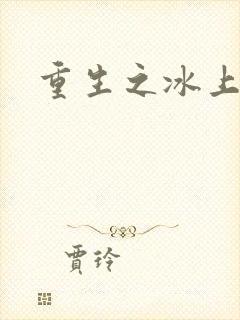 重生之冰上
賈玲